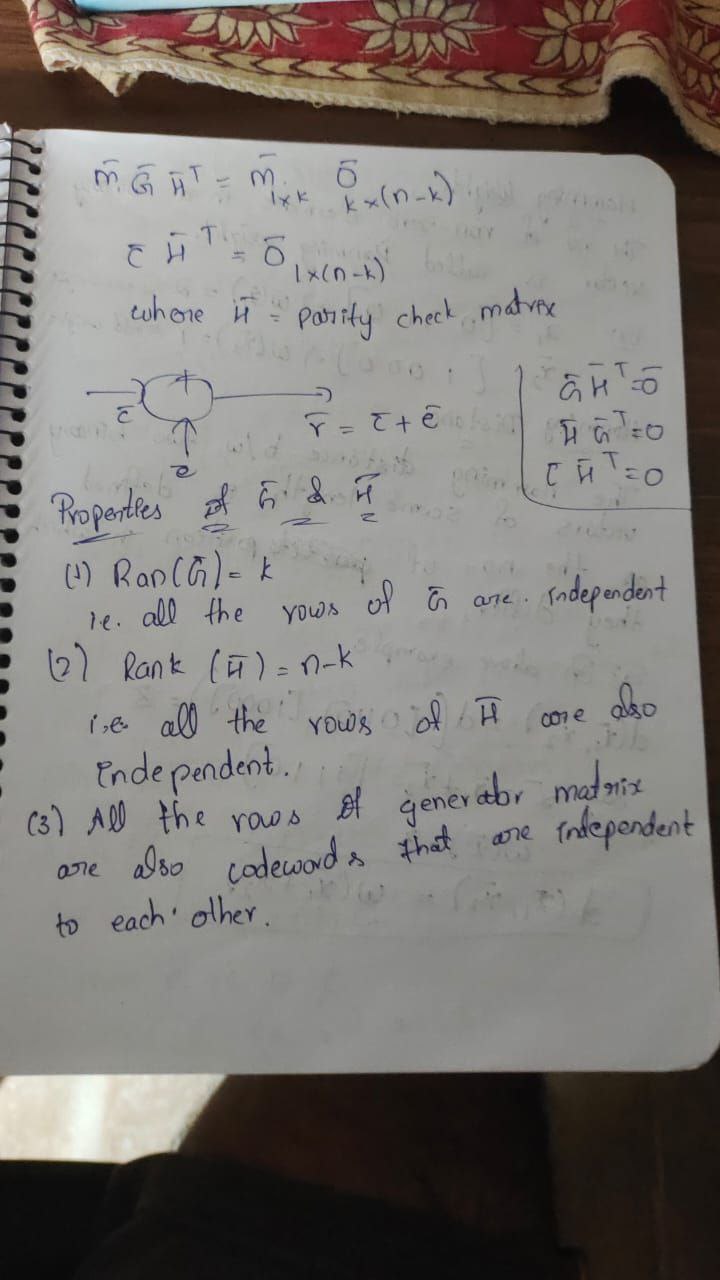 m̄. Ḡ H̄ᵀ = m̄ 1×k 0̄ k×(n-k)
c̄ H̄ᵀ = 0̄ 1×(n-k)
where H̄ = parity check matrix
c̄ + r̄ = c̄ + ē
e
Ḡ H̄ᵀ=0̄
H̄ Ḡᵀ=0
c̄ H̄ᵀ=0
Properties of Ḡ & H̄
(1) Ran(Ḡ) = k
i.e. all the rows of Ḡ are. independent
(2) Rank (H̄) = n-k
i.e. all the rows of H̄ are also
independent.
(3) All the rows of generator matrix
are also codewords that are independent
to each other.